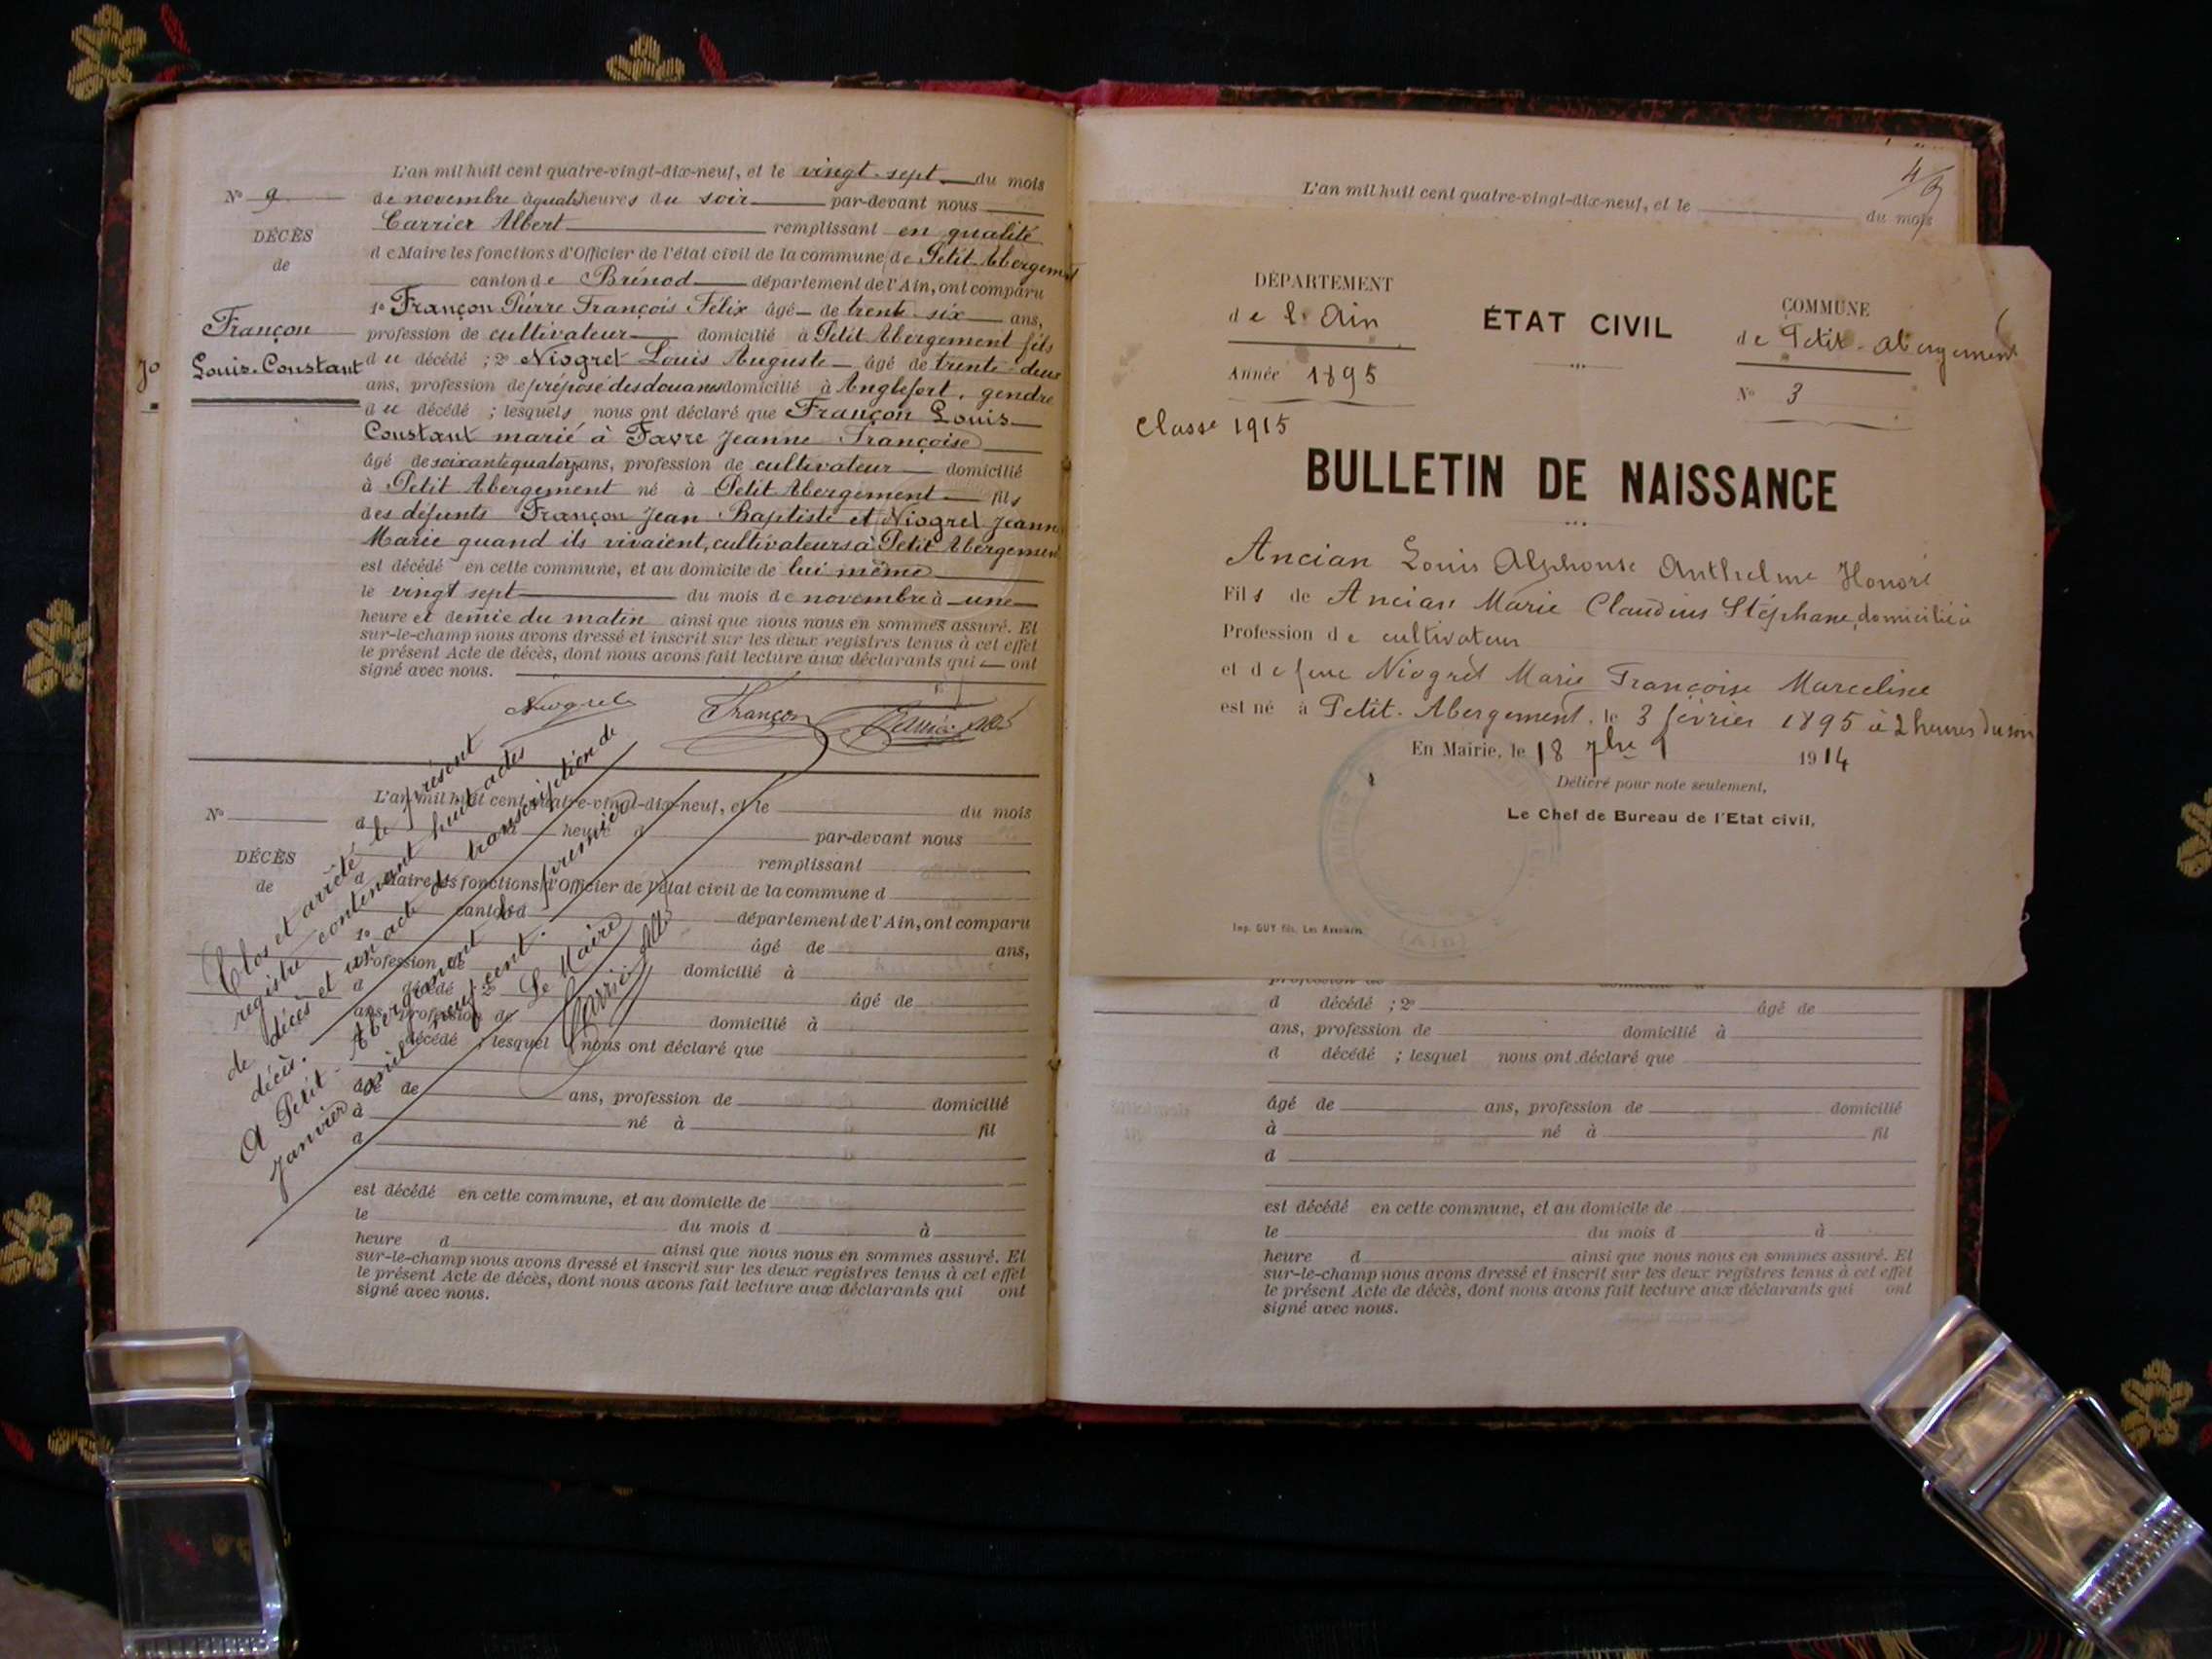 L'an mil huit cent quatre-vingt-dix-neuf, et le vingt-sept du mois
N° 9
de novembre à quatre heures du soir par-devant nous
Carrier Albert remplissant en qualité
DÉCÈS
de Maire les fonctions d'Officier de l'état civil de la commune de Petit Abergement
de
canton de Brénod département de l'Ain, ont comparu
1° Françon Pierre François Félix âgé de trente-six ans,
Françon
profession de cultivateur domicilié à Petit Abergement fils
Louis-Constant
70
du décédé ; 2° Niogret Louis Auguste âgé de trente-deux
ans, profession de préposé des douanes domicilié à Anglefort, gendre
du décédé ; lesquels nous ont déclaré que Françon Louis
Constant marié à Favre Jeanne Françoise
âgé de soixante quatorze ans, profession de cultivateur domicilié
à Petit Abergement né à Petit Abergement fils
des défunts Françon Jean Baptiste et Niogret Jeanne
Marie quand ils vivaient, cultivateurs à Petit Abergement
est décédé en cette commune, et au domicile de lui même
le vingt sept du mois de novembre à une
heure et demie du matin ainsi que nous nous en sommes assuré. Et
sur-le-champ nous avons dressé et inscrit sur les deux registres tenus à cet effet
le présent Acte de décès, dont nous avons fait lecture aux déclarants qui ont
signé avec nous.
Niogret Françon Carrier Albt
L'an mil huit cent quatre-vingt-dix-neuf, et le du mois
N°
d heure d par-devant nous
DÉCÈS
remplissant
de
d Maire les fonctions d'Officier de l'état civil de la commune d
canton d département de l'Ain, ont comparu
1° âgé de ans,
profession de domicilié à
d décédé ; 2° âgé de
ans, profession de domicilié à
d décédé ; lesquel nous ont déclaré que
âgé de ans, profession de domicilié
à né à fil
d
est décédé en cette commune, et au domicile de
le du mois d à
heure d ainsi que nous nous en sommes assuré. Et
sur-le-champ nous avons dressé et inscrit sur les deux registres tenus à cet effet
le présent Acte de décès, dont nous avons fait lecture aux déclarants qui ont
signé avec nous.
Clos et arrêté le présent
registre contenant huit actes
de décès et un acte de transcription de
décès.
A Petit-Abergement le premier
Janvier mil neuf cent.
Le Maire
Carrier Albt
L'an mil huit cent quatre-vingt-dix-neuf, et le du mois
DÉPARTEMENT
de l'Ain
ÉTAT CIVIL
COMMUNE
de Petit-Abergement
Année 1895
N° 3
Classe 1915
BULLETIN DE NAISSANCE
Ancian Louis Alphonse Anthelme Honoré
Fils de Ancian Marie Claudius Stéphane, domicilié à
Profession de cultivateur
et de feue Niogret Marie Françoise Marceline
est né à Petit-Abergement, le 3 février 1895 à 2 heures du soir
En Mairie, le 18 7bre 1914
Délivré pour note seulement,
Le Chef de Bureau de l'Etat civil,
Imp. GUY fils, Les Avenières
(Ain)
profession de domicilié à
d décédé ; 2° âgé de
ans, profession de domicilié à
d décédé ; lesquel nous ont déclaré que
âgé de ans, profession de domicilié
à né à fil
d
est décédé en cette commune, et au domicile de
le du mois d à
heure d ainsi que nous nous en sommes assuré. Et
sur-le-champ nous avons dressé et inscrit sur les deux registres tenus à cet effet
le présent Acte de décès, dont nous avons fait lecture aux déclarants qui ont
signé avec nous.